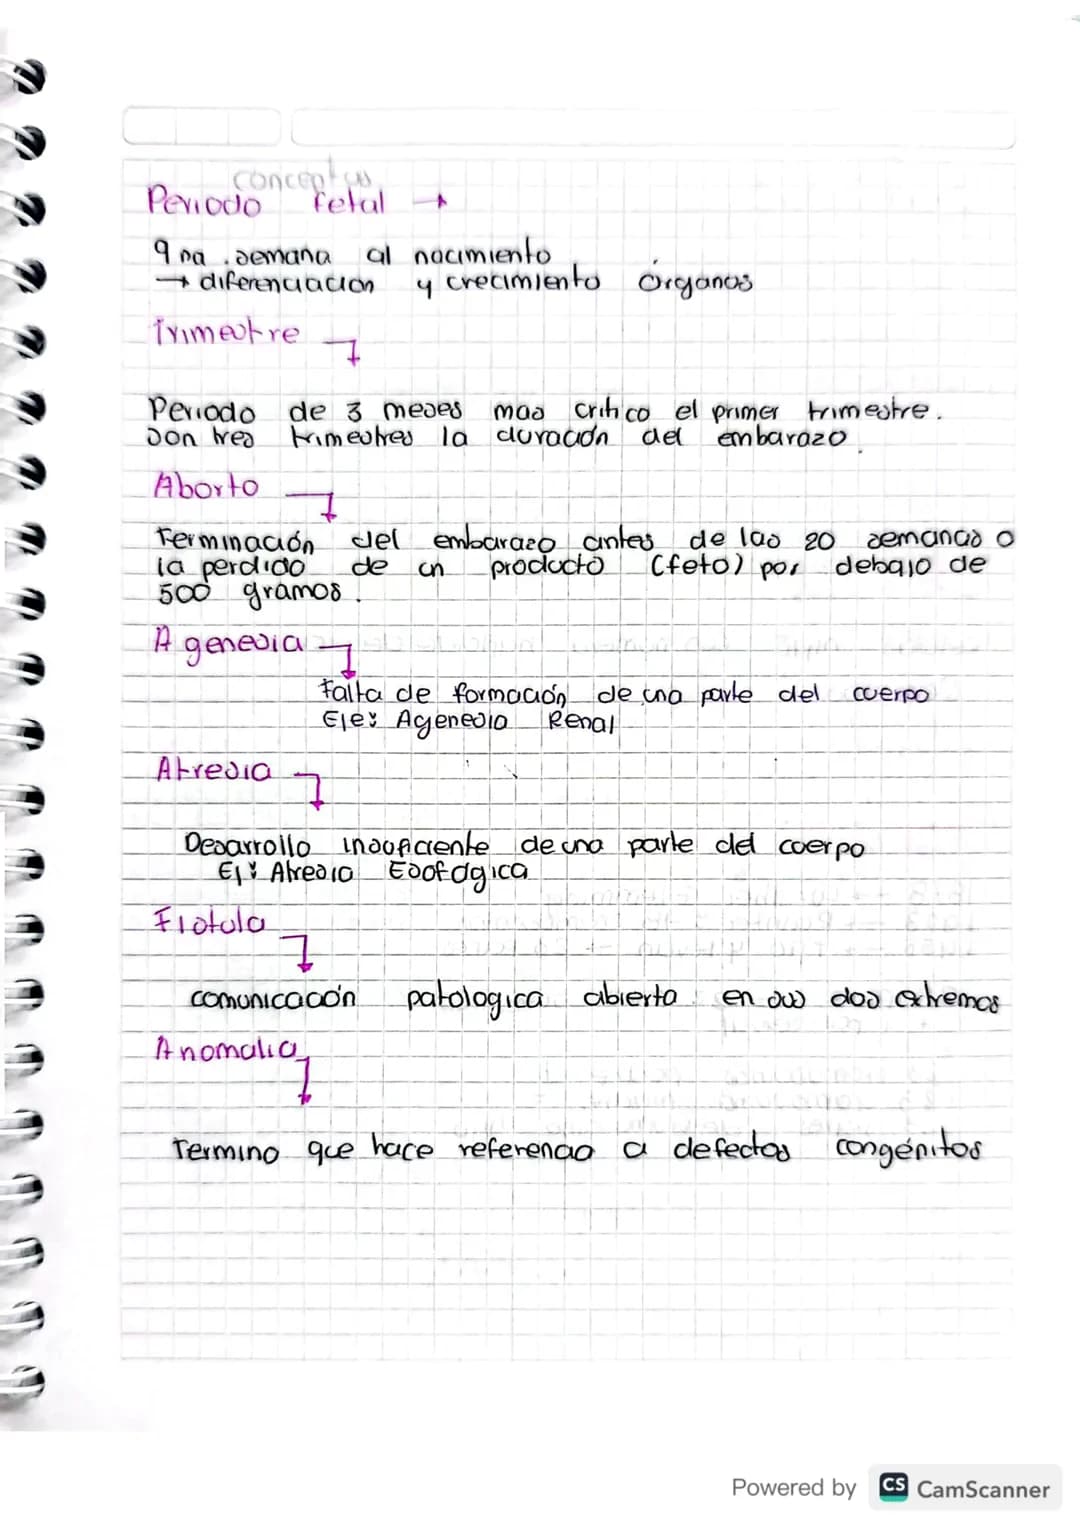 conceptus
Periodo fetal →
9 na semana al nacimiento
→ diferenciacion y crecimiento órganos
Trimestre
Periodo de 3 meses mas critico el primer trimestre.
Son tres trimestres la duración del embarazo.
Aborto
Terminación del embarazo antes de las 20 semanas o
la perdida de un producto (feto) por debajo de
500 gramos.
Agenesia
Falta de formación de una parte del cuerpo
Eje: Agenesia Renal
Atresia
Desarrollo insuficiente de una parte del cuerpo
Ej: Atresia Esofagica
Fistula
comunicación patologica abierta en sus dos extremos
Anomalia
Termino que hace referencia a defectos congénitos
Powered by CS CamScanner